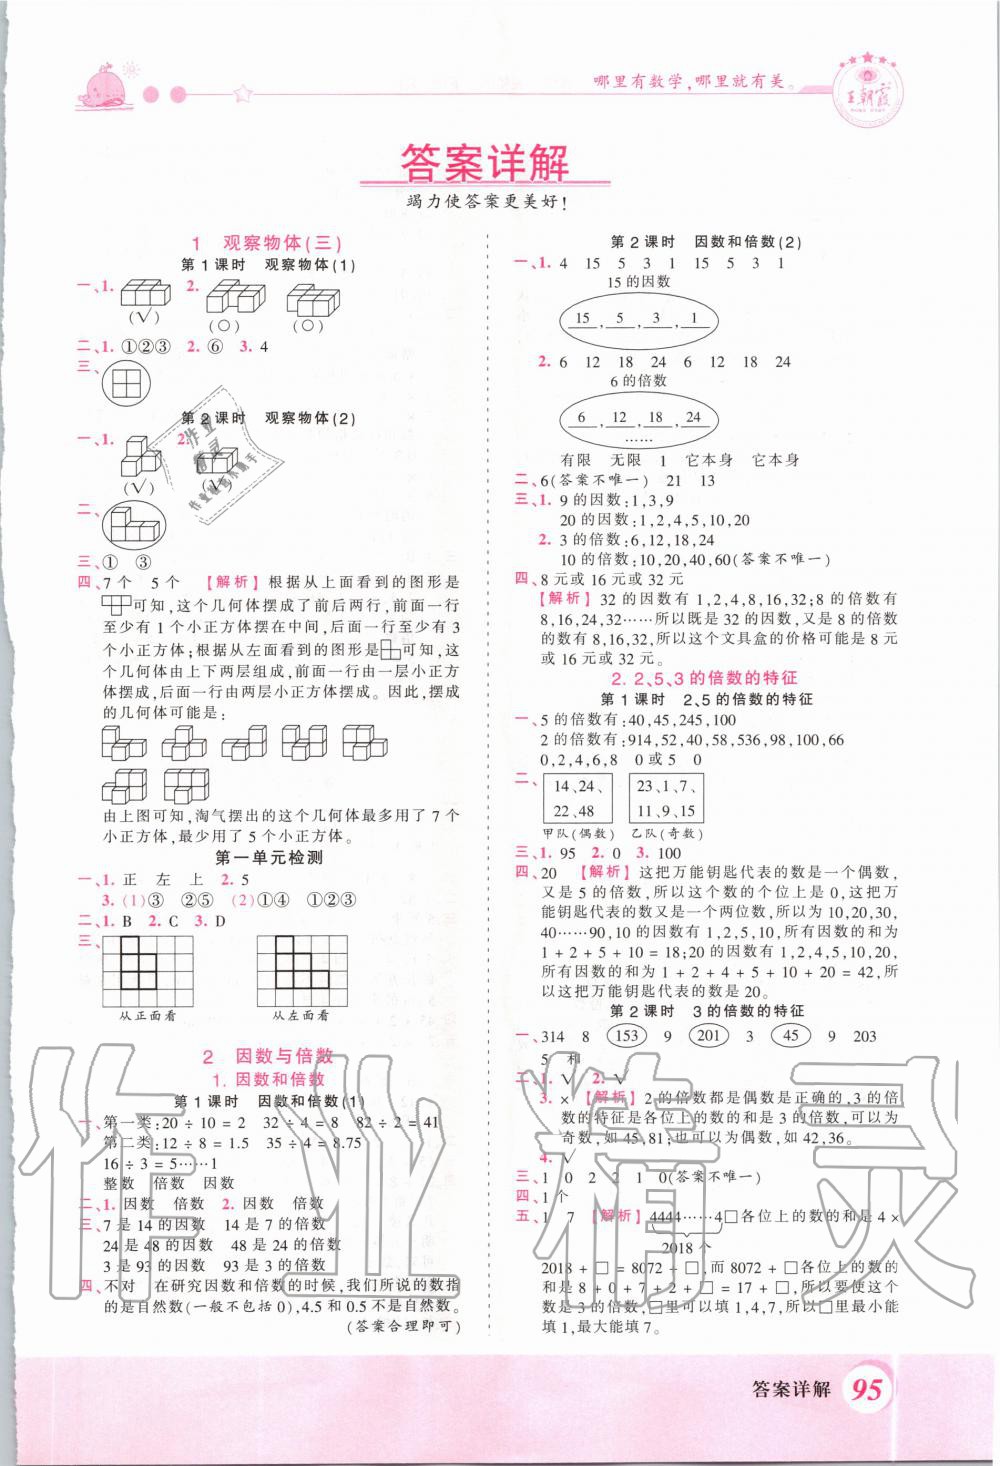 哪里有数学,哪里就有美。
王朝霞
答案详解
竭力使答案更美好!
1 观察物体(三)
第1课时 观察物体(1)
一、1. 2.
(√) (○) (○)
二、1. ①②③ 2. ⑥ 3. 4
三、
第2课时 观察物体(2)
一、1. 2.
(√) (√)
二、
三、① ③
四、7个 5个 【解析】根据从上面看到的图形是
可知,这个几何体摆成了前后两行,前面一行
至少有1个小正方体摆在中间,后面一行至少有3
个小正方体;根据从左面看到的图形是可知,这
个几何体由上下两层组成,前面一行由一层小正方
体摆成,后面一行由两层小正方体摆成。因此,摆成
的几何体可能是:
由上图可知,淘气摆出的这个几何体最多用了7个
小正方体,最少用了5个小正方体。
第一单元检测
一、1. 正 左 上 2. 5
3. (1)③ ②⑤ (2)①④ ①②③
二、1. B 2. C 3. D
三、
从正面看 从左面看
2 因数与倍数
1. 因数和倍数
第1课时 因数和倍数(1)
一、第一类:20÷10=2 32÷4=8 82÷2=41
第二类:12÷8=1.5 35÷4=8.75
16÷3=5……1
整数 倍数 因数
二、1. 因数 倍数 2. 因数 倍数
三、7是14的因数 14是7的倍数
24是48的因数 48是24的倍数
3是93的因数 93是3的倍数
四、不对 在研究因数和倍数的时候,我们所说的数指
的是自然数(一般不包括0),4.5和0.5不是自然数。
(答案合理即可)
第2课时 因数和倍数(2)
一、1. 4 15 5 3 1 15 5 3 1
15的因数
15,5,3,1
2. 6 12 18 24 6 12 18 24
6的倍数
6,12,18,24
……
有限 无限 1 它本身 它本身
二、6(答案不唯一) 21 13
三、1. 9的因数:1,3,9
20的因数:1,2,4,5,10,20
2. 3的倍数:6,12,18,24
10的倍数:10,20,40,60(答案不唯一)
四、8元或16元或32元
【解析】32的因数有1,2,4,8,16,32;8的倍数有
8,16,24,32……所以既是32的因数,又是8的倍数
的数有8,16,32,所以这个文具盒的价格可能是8元
或16元或32元。
2. 2、5、3的倍数的特征
第1课时 2、5的倍数的特征
一、5的倍数有:40,45,245,100
2的倍数有:914,52,40,58,536,98,100,66
0,2,4,6,8 0或5 0
二、14、24、 23、1、7、
22、48 11、9、15
甲队(偶数) 乙队(奇数)
三、1. 95 2. 0 3. 100
四、20 【解析】这把万能钥匙代表的数是一个偶数,
又是5的倍数,所以这个数的个位上是0,这把万
能钥匙代表的数又是一个两位数,所以为10,20,30,
40……90,10的因数有1,2,5,10,所有因数的和为
1+2+5+10=18;20的因数有1,2,4,5,10,20,
所有因数的和为1+2+4+5+10+20=42,所
以这把万能钥匙代表的数是20。
第2课时 3的倍数的特征
一、314 8 153 9 201 3 45 9 203
5 和
二、1. √ 2. √
3. × 【解析】2的倍数都是偶数是正确的,3的倍
数的特征是各位上的数的和是3的倍数,可以为
奇数,如45,81;也可以为偶数,如42,36。
4. √
三、1 0 2 2 1 0(答案不唯一)
四、1个
五、1 7 【解析】4444……4□各位上的数的和是4×
2018个
2018+□=8072+□,而8072+□各位上的数的
和是8+0+7+2+□=17+□,所以要使这个
数是3的倍数,□里可以填1,4,7,所以□里最小能
填1,最大能填7。
作业精灵
答案详解 95